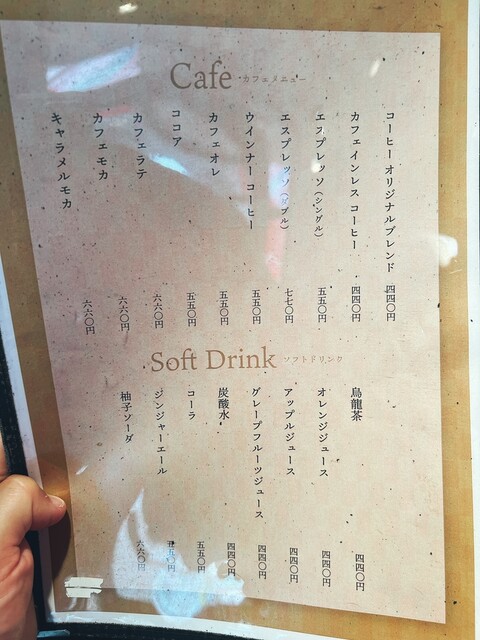 Cafe カフェメニュー
コーヒー オリジナルブレンド 四四〇円
カフェインレス コーヒー 四四〇円
エスプレッソ（シングル） 五五〇円
エスプレッソ（ダブル） 七七〇円
ウインナーコーヒー 五五〇円
カフェオレ 五五〇円
ココア 五五〇円
カフェラテ 六六〇円
カフェモカ 六六〇円
キャラメルモカ 六六〇円
Soft Drink ソフトドリンク
烏龍茶 四四〇円
オレンジジュース 四四〇円
アップルジュース 四四〇円
グレープフルーツジュース 四四〇円
炭酸水 四四〇円
コーラ 五五〇円
ジンジャーエール 五五〇円
柚子ソーダ 六六〇円